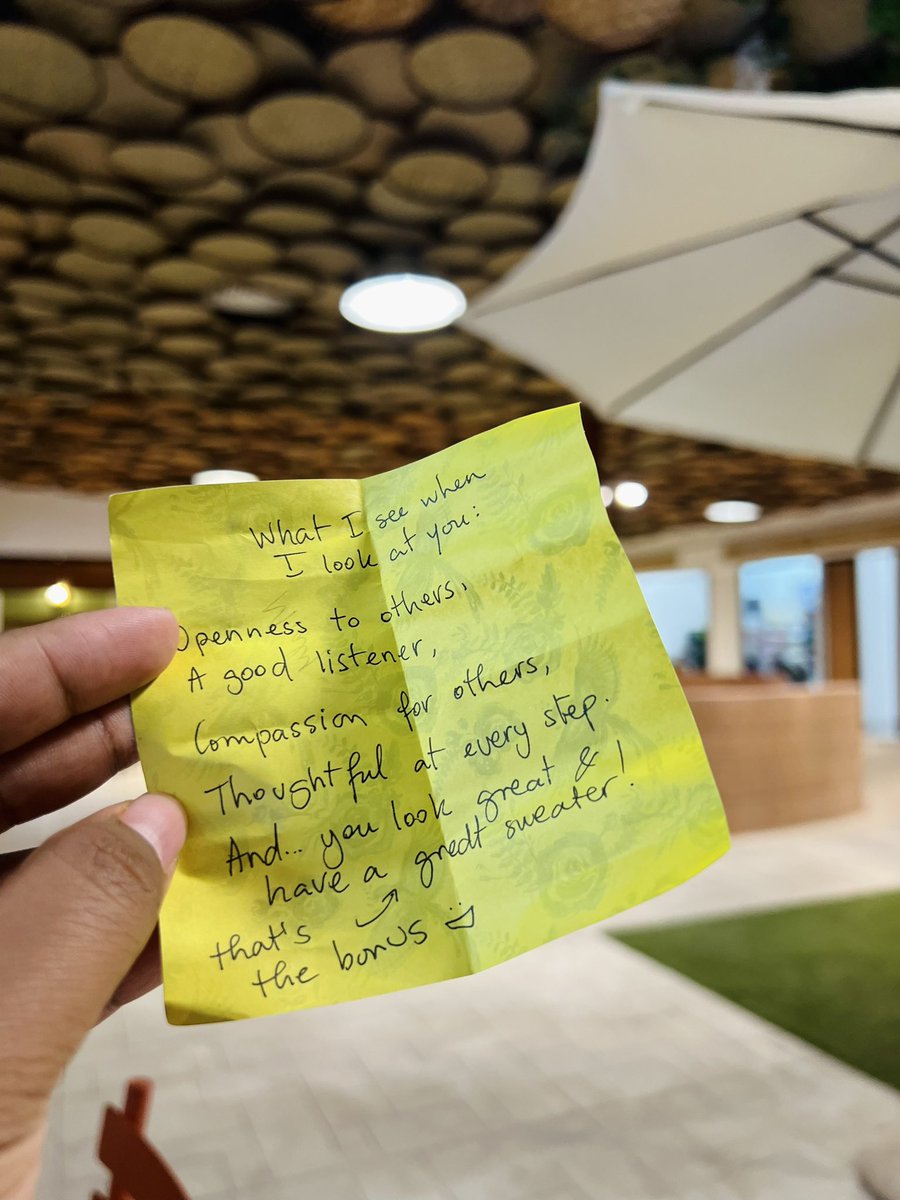 What I see when
I look at you:
Openness to others,
A good listener,
Compassion for others,
Thoughtful at every step.
And... you look great &
have a great sweater!
that's
the bonus